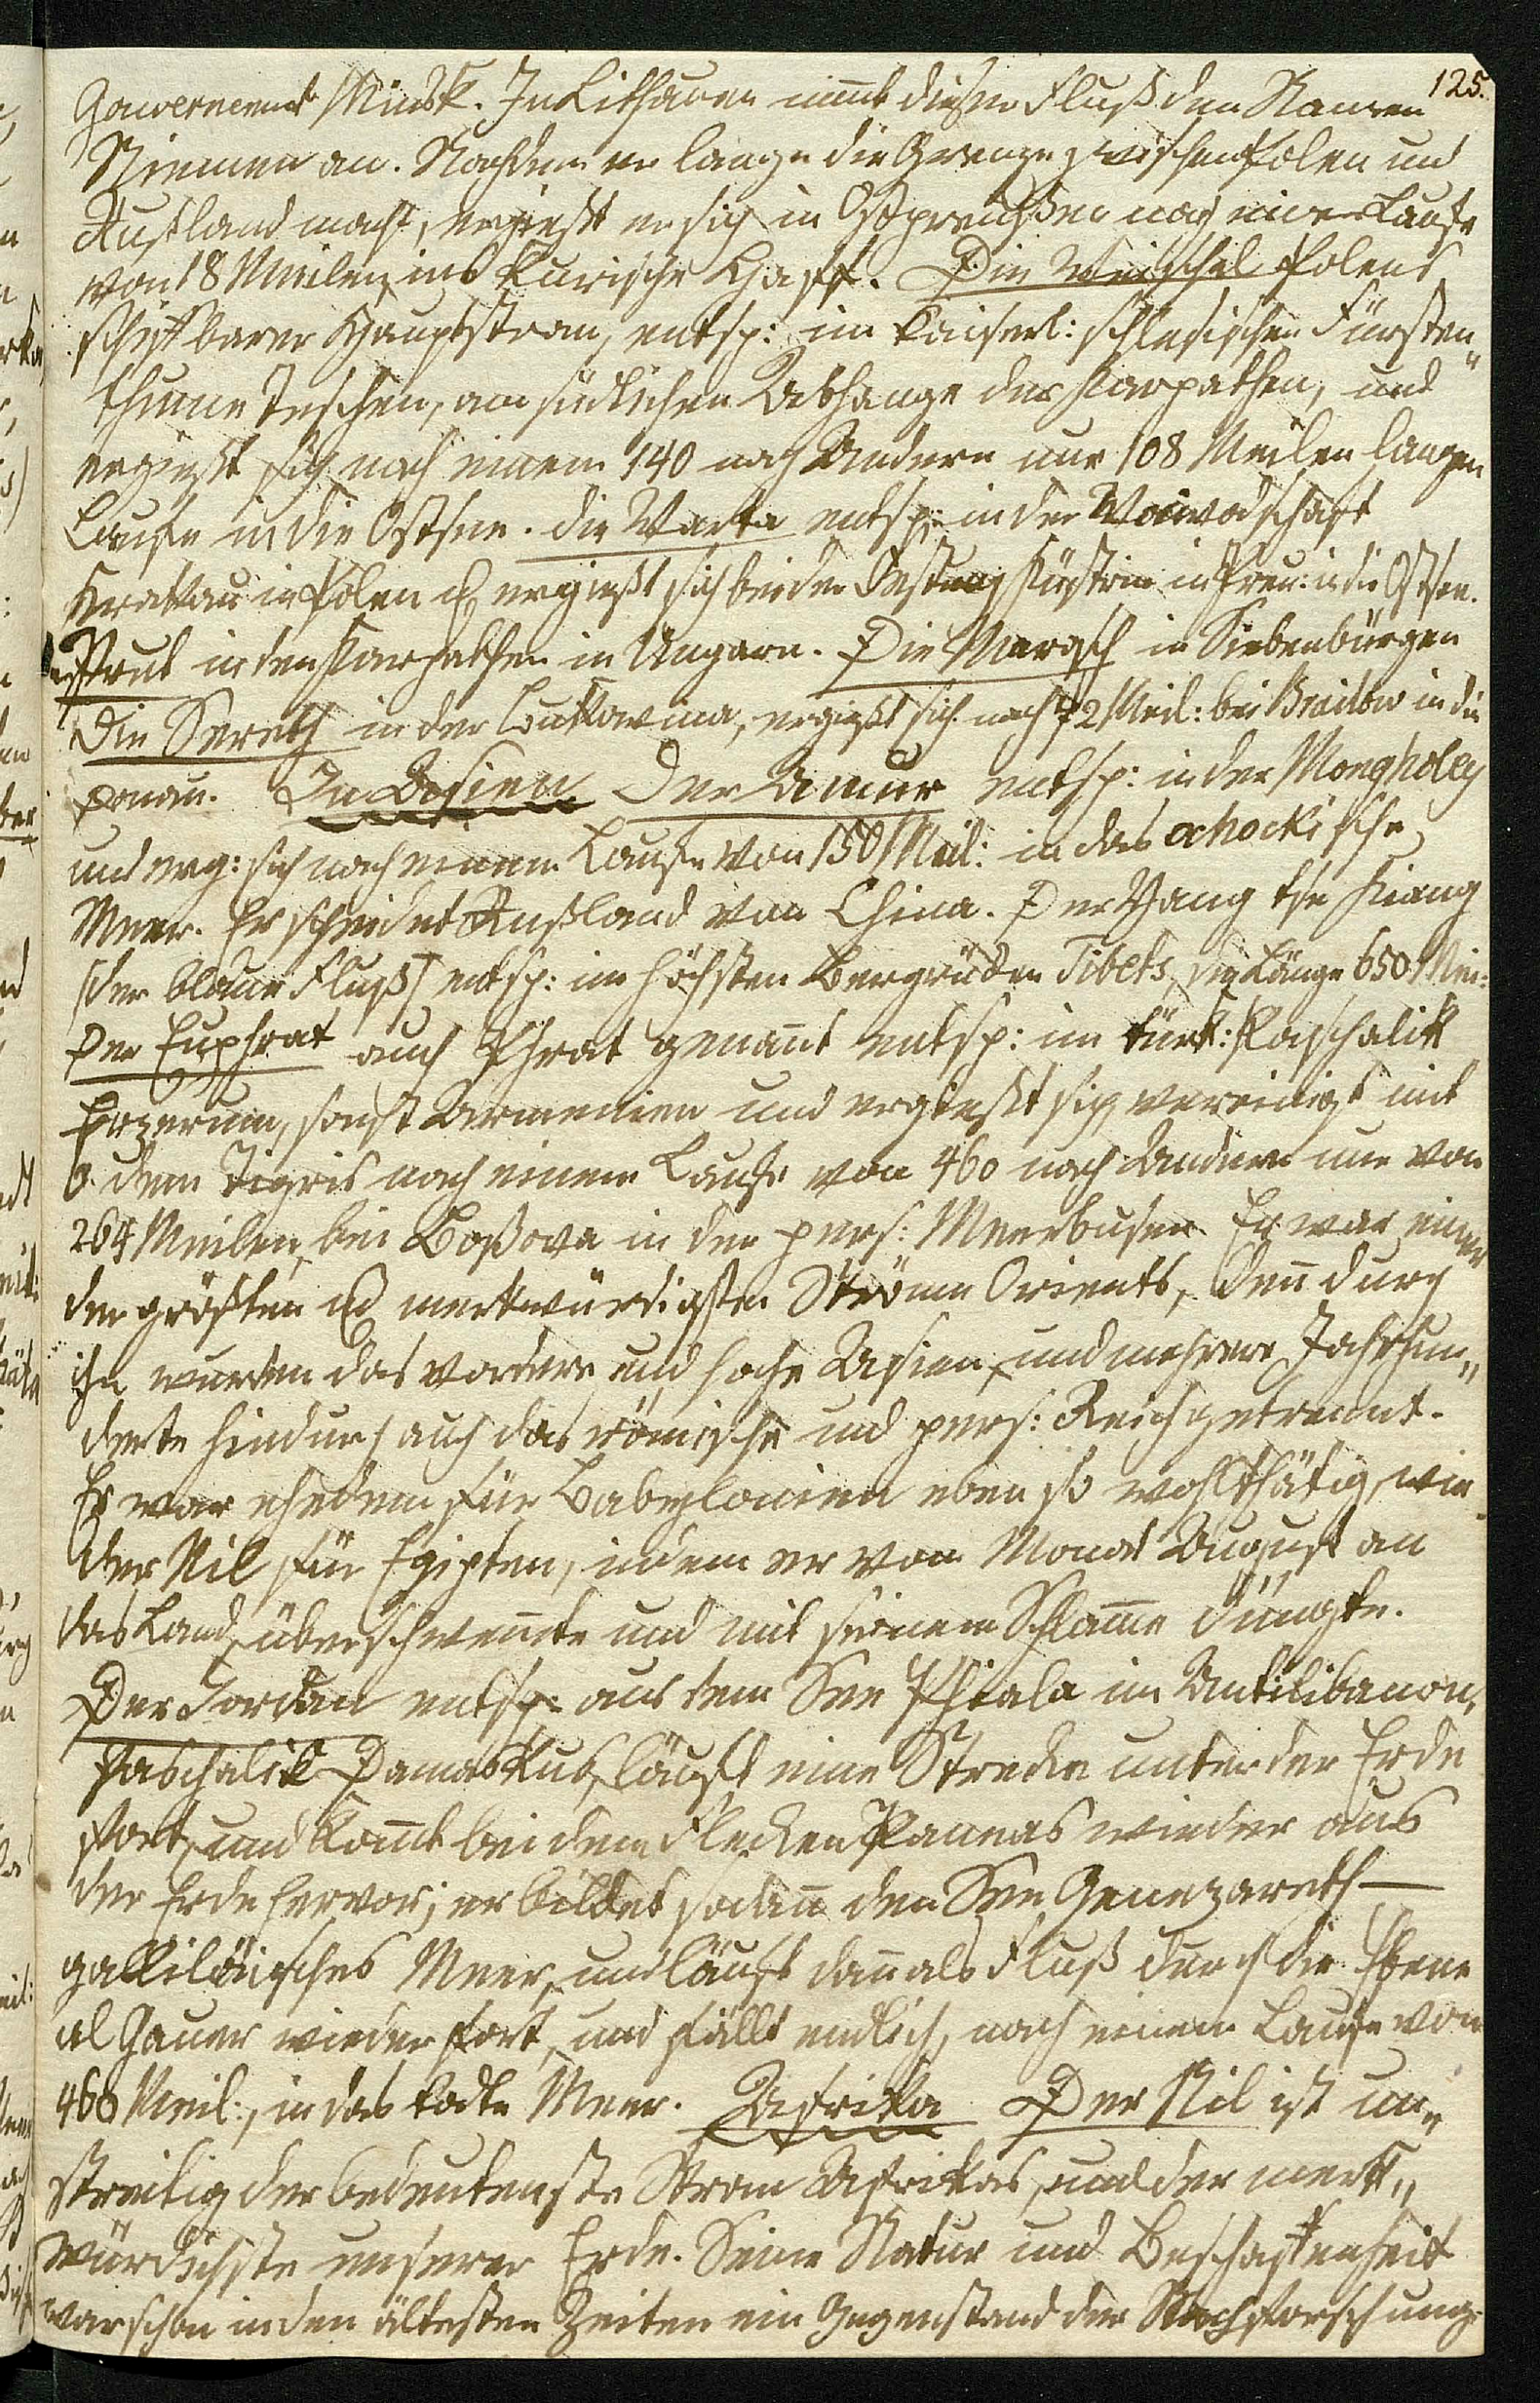 125.
Gouvernement Minsk. In Litthauen nimmt dieser Fluß den Namen
Niemen an. Nachdem er lange die Grenze zwischen Polen und
Rußland macht, ergießt er sich in Ostpreußen nach einem Laufe
von 18 Meilen ins kurische Haff. Die Weichsel Polens
schiffbarer Hauptstrom, entsp: im kaiserl: schlesischen Fürsten„
thume Teschen, am südlichen Abhange der Karpathen, und
ergießt sich nach einem 140 nach Andern nur 108 Meilen langen
Laufe in die Ostsee. die Warta entsp: in der Woiwodschaft
Krakau in Polen u ergießt sich bei der Festung Küstrin in Preu: in die Ostsee.
Prut in den Karpathen in Ungarn. Die Marosch in Siebenbürgen
Die Sereth in der Bukowina, ergießt sich nach 72 Meil: bei Brailow in die
Donau. In Asien Der Amur entsp: in der Mongholey
und erg: sich nach einem Laufe von 150 Meil: in das ochockische
Meer. Er scheidet Rußland von China. Der Yang tse Kiang
(der blaue Fluß) entsp: im höchsten Bergrücken Tibets, die Länge 650 Mei:
Der Euphrat auch Phrat genannt entsp: im türk: Paschalik
Erzerum, sonst Armenien und ergießt sich vereinigt mit
dem Tigris nach einem Laufe von 460 nach Andern nur von
264 Meilen, bei Boßora in den pers: Meerbusen. Er war einer
der größten u merkwürdigsten Ströme Orients, denn durch
ihn wurden das vordere und hohe Asien, und mehrere Jahrhun„
derte hindurch auch das römische und pers: Reich getrennt.
Er war ehedem für Babylonien eben so wohlthätig, wie
der Nil für Egipten, indem er vom Monat August an
das Land überschwemte und mit seinem Schlamme düngte.
Der Jordan entsp: aus dem See Phiala im Antilibanon,
Paschalik Damaskus, läuft eine Strecke unter der Erde
fort, und komt bei dem Flecken Paneas wieder aus
der Erde hervor; er bildet sodann den See Genezareth —
galliläisches Meer, und läuft dann als Fluß durch die Ebene
al Gauer wieder fort, und fällt endlich, nach einem Laufe von
460 Meil:, in das todte Meer. Afrika Der Nil ist un„
streitig der bedeutenste Strom Afrikas, und der merk„
würdichste unserer Erde. Seine Natur und Beschaffenheit
war schon in den ältesten Zeiten ein Gegenstand der Nachforschung